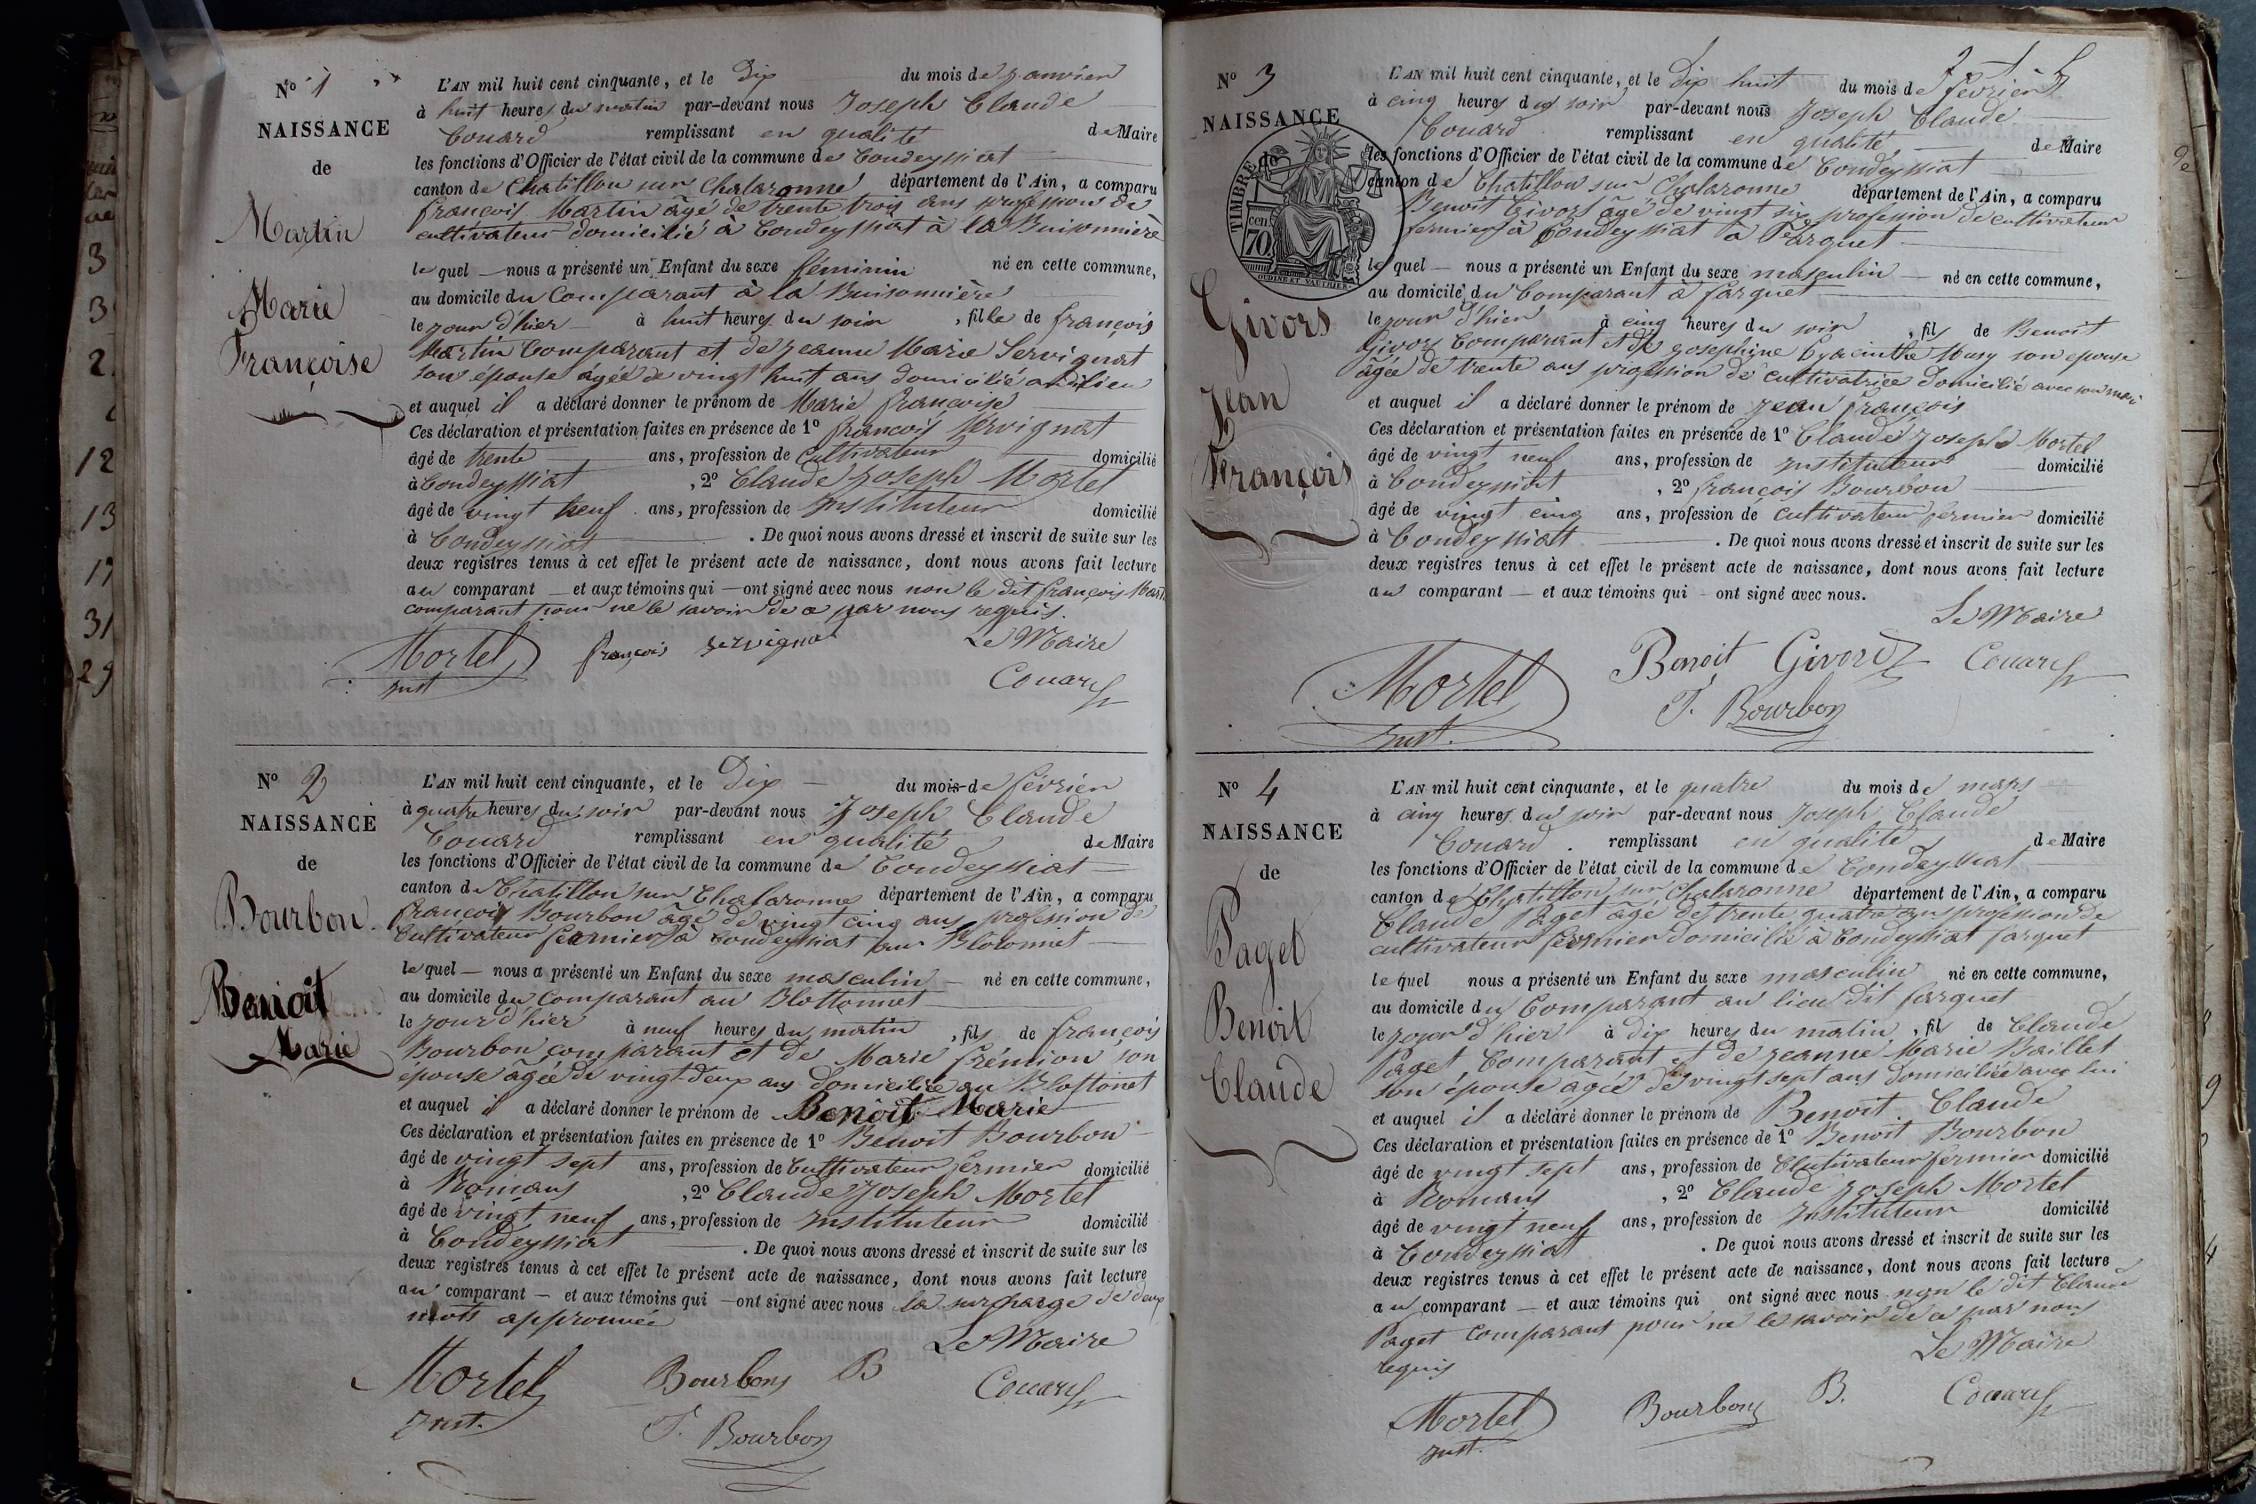 N° 1
NAISSANCE
de
Martin
Marie
Françoise
L'AN mil huit cent cinquante, et le Dix du mois de janvier
à huit heures du matin par-devant nous Joseph Claude
Couard remplissant en qualité de Maire
les fonctions d'Officier de l'état civil de la commune de Condeyssiat
canton de Chatillon sur Chalaronne département de l'Ain, a comparu
françois Martin âgé de trente trois ans profession de
cultivateur domicilié à Condeyssiat à la Buisonnière
lequel nous a présenté un Enfant du sexe féminin né en cette commune,
au domicile du Comparant à la Buisonnière
le jour d'hier à huit heures du soir, fille de françois
Martin Comparant et de jeanne Marie Servignat
son épouse âgée de vingt huit ans domicilié audilieu
et auquel il a déclaré donner le prénom de Marie françoise
Ces déclaration et présentation faites en présence de 1° françois Servignat
âgé de trente ans, profession de Cultivateur domicilié
à Condeyssiat, 2° Claude Joseph Mortel
âgé de vingt neuf ans, profession de Instituteur domicilié
à Condeyssiat. De quoi nous avons dressé et inscrit de suite sur les
deux registres tenus à cet effet le présent acte de naissance, dont nous avons fait lecture
au comparant et aux témoins qui ont signé avec nous non le dit françois Mart
comparant pour ne le savoir de ce par nous requis.
Mortel françois servigna Le Maire
Inst Couard
N° 2
NAISSANCE
de
Bourbon
Benoit
Marie
L'AN mil huit cent cinquante, et le Dix du mois de février
à quatre heures du soir par-devant nous Joseph Claude
Couard remplissant en qualité de Maire
les fonctions d'Officier de l'état civil de la commune de Condeyssiat
canton de Chatillon sur Chalaronne département de l'Ain, a comparu
françois Bourbon âgé de vingt cinq ans profession de
Cultivateur fermier à Condeyssiat au
lequel nous a présenté un Enfant du sexe masculin né en cette commune,
au domicile du Comparant au Blottonnet
le jour d'hier à neuf heures du matin, fils de françois
Bourbon comparant et de Marie frémion son
épouse âgée de vingt deux ans domiciliée au Blottonet
et auquel il a déclaré donner le prénom de Benoit Marie
Ces déclaration et présentation faites en présence de 1° Benoit Bourbon
âgé de vingt sept ans, profession de Cultivateur fermier domicilié
à Romans, 2° Claude Joseph Mortel
âgé de vingt neuf ans, profession de Instituteur domicilié
à Condeyssiat. De quoi nous avons dressé et inscrit de suite sur les
deux registres tenus à cet effet le présent acte de naissance, dont nous avons fait lecture
au comparant et aux témoins qui ont signé avec nous la surcharge de deux
mots approuvée
Le Maire
Mortel Bourbon B Couard
Inst. F. Bourbon
N° 3
NAISSANCE
de
TIMBRE
cen 70.
OUDINÉ ET VAUTHIER
Givors
Jean
François
L'AN mil huit cent cinquante, et le Dix huit du mois de février
à cinq heures du soir par-devant nous Joseph Claude
Couard remplissant en qualité de Maire
les fonctions d'Officier de l'état civil de la commune de Condeyssiat
canton de Chatillon sur Chalaronne département de l'Ain, a comparu
Benoit Givors âgé de vingt six profession de cultivateur
fermier à Condeyssiat à farguet
lequel nous a présenté un Enfant du sexe masculin né en cette commune,
au domicile du Comparant à farguet
le jour d'hier à cinq heures du soir, fils de Benoit
Givors Comparant et de Josephine hyacinthe Musy son epouse
âgée de trente ans profession de cultivatrice domicilié avec son mari
et auquel il a déclaré donner le prénom de jean françois
Ces déclaration et présentation faites en présence de 1° Claude joseph Mortel
âgé de vingt neuf ans, profession de Instituteur domicilié
à Condeyssiat, 2° françois Bourbon
âgé de vingt cinq ans, profession de cultivateur fermier domicilié
à Condeyssiat. De quoi nous avons dressé et inscrit de suite sur les
deux registres tenus à cet effet le présent acte de naissance, dont nous avons fait lecture
au comparant et aux témoins qui ont signé avec nous.
Le Maire
Mortel Benoit Givord Couard
Inst. F. Bourbon
N° 4
NAISSANCE
de
Paget
Benoit
Claude
L'AN mil huit cent cinquante, et le quatre du mois de mars
à cinq heures du soir par-devant nous Joseph Claude
Couard remplissant en qualité de Maire
les fonctions d'Officier de l'état civil de la commune de Condeyssiat
canton de Chatillon sur Chalaronne département de l'Ain, a comparu
Claude Paget âgé de trente quatre ans profession de
cultivateur fermier domicilié à Condeyssiat farguet
lequel nous a présenté un Enfant du sexe masculin né en cette commune,
au domicile du Comparant au lieu dit farguet
le jour d'hier à dix heures du matin, fils de Claude
Paget, Comparant et de jeanne Marie Baillet
son épouse agée de vingt sept ans domiciliée avec lui
et auquel il a déclaré donner le prénom de Benoit Claude
Ces déclaration et présentation faites en présence de 1° Benoit Bourbon
âgé de vingt sept ans, profession de Cultivateur fermier domicilié
à Romans, 2° Claude Joseph Mortel
âgé de vingt neuf ans, profession de Instituteur domicilié
à Condeyssiat. De quoi nous avons dressé et inscrit de suite sur les
deux registres tenus à cet effet le présent acte de naissance, dont nous avons fait lecture
au comparant et aux témoins qui ont signé avec nous non le dit Claude
Paget comparant pour ne le savoir de ce par nous
requis Le Maire
Mortel Bourbon B. Couard
Inst.